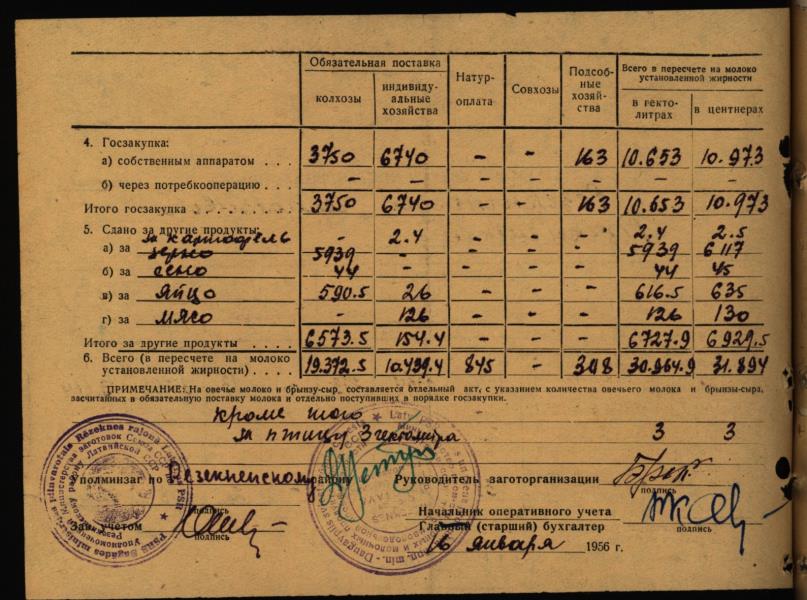 Обязательная поставка Натур- оплата Совхозы Подсоб- ные хозяй- ства Всего в пересчете на молоко установленной жирности
колхозы индивиду- альные хозяйства в гекто- литрах в центнерах
4. Госзакупка:
а) собственным аппаратом . . . 3750 6740 - - 163 10.653 10.973
б) через потребкооперацию . . . — — - - — — —
Итого госзакупка . . . 3750 6740 - - 163 10.653 10.973
5. Сдано за другие продукты:
за картофель - 2.4 - - - 2.4 2.5
а) за зерно 5939 - - - - 5939 6117
б) за сено 44 - - - - 44 45
в) за яйцо 590.5 26 - - - 616.5 635
г) за мясо - 126 - - - 126 130
Итого за другие продукты . . 6573.5 154.4 - - - 6727.9 6929.5
6. Всего (в пересчете на молоко
установленной жирности) . . . . 19.372.5 10.439.4 845 - 308 30.964.9 31.894
ПРИМЕЧАНИЕ: На овечье молоко и брынзу-сыр, составляется отдельный акт, с указанием количества овечьего молока и брынзы-сыра,
засчитанных в обязательную поставку молока и отдельно поступивших в порядке госзакупки.
кроме того
за птицу 3 гектолитра 3 3
Уполминзаг по Резекненскому району Руководитель заготорганизации
подпись подпись
Начальник оперативного учета
Зав. учетом Главный (старший) бухгалтер
подпись подпись
16 января 1956 г.